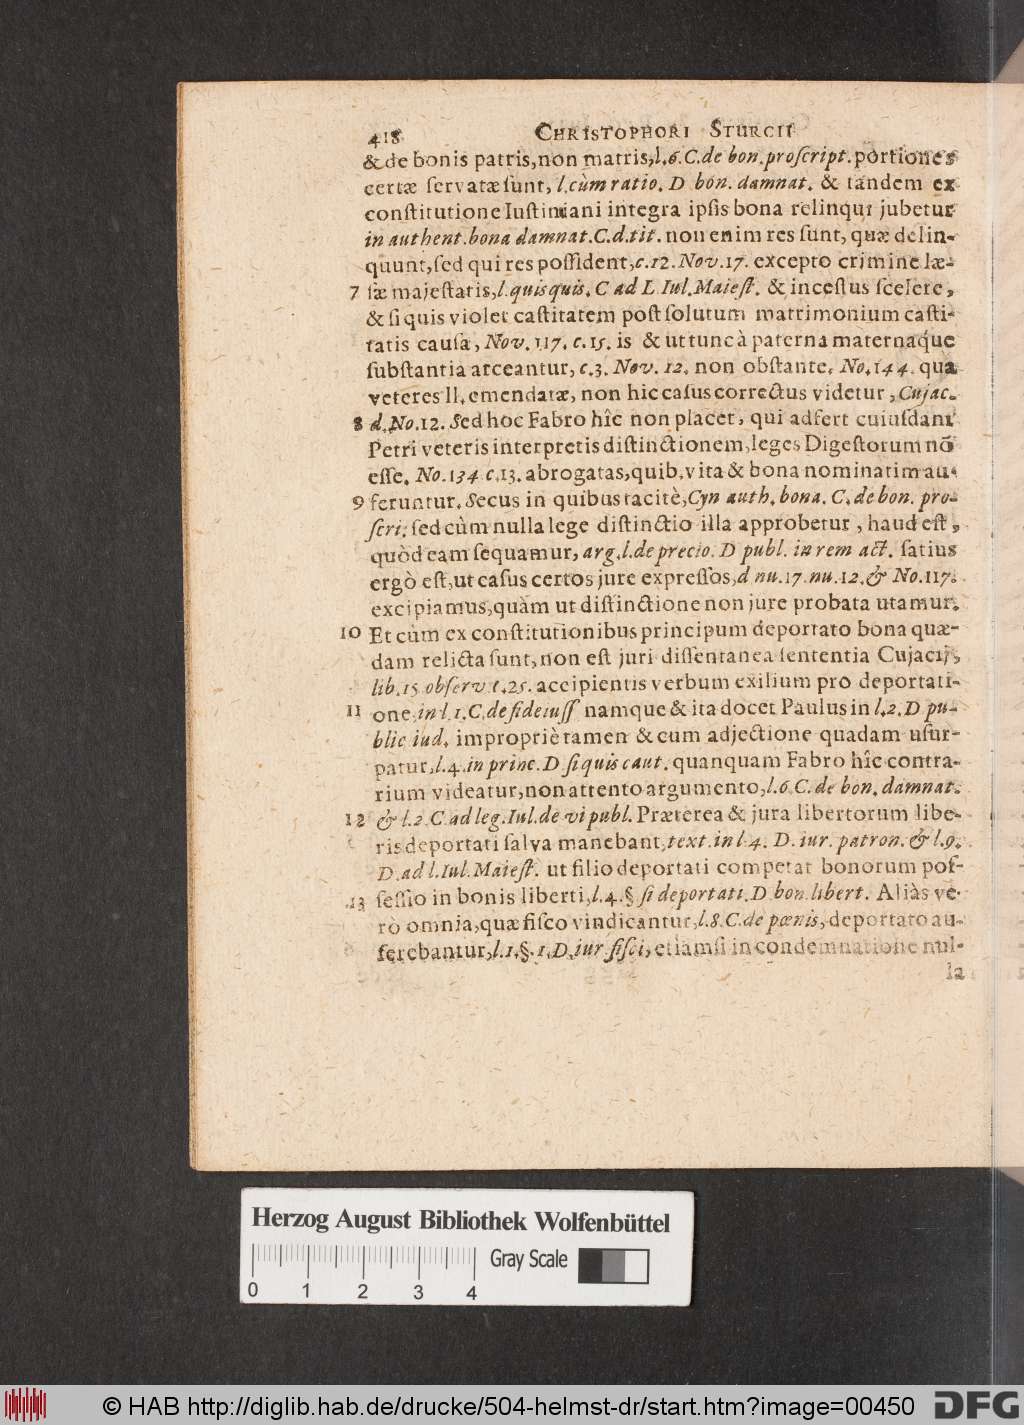 418 CHRISTOPHORI STURCII
& de bonis patris, non matris, l.6.C.de bon.proſcript. portiones
certæ ſervatæ ſunt, l.cùm ratio. D bon. damnat. & tandem ex
conſtitutione Iuſtiniani integra ipſis bona relinqui jubetur
in authent.bona damnat.C.d.tit. non enim res ſunt, quæ delin-
quunt, ſed qui res poſſident, c.12. Nov.17. excepto crimine læ-
7 ſæ majeſtatis, l.quisquis. C ad L Iul.Maieſt. & inceſtus ſcelere,
& ſi quis violet caſtitatem poſt ſolutum matrimonium caſti-
tatis cauſa, Nov. 117. c.15. is & ut tunc à paterna maternaq́ue
ſubſtantia arceantur, c.3. Nov. 12. non obſtante, No.144. qua
veteres ll. emendatæ, non hic caſus correctus videtur, Cujac.
8 d.No.12. Sed hoc Fabro hîc non placet, qui adfert cuiuſdam
Petri veteris interpretis diſtinctionem, leges Digeſtorum nō
eſſe. No.134 c.13. abrogatas, quib. vita & bona nominatim au-
9 feruntur. Secus in quibus tacitè, Cyn auth. bona. C. de bon. pro-
ſcri: ſed cùm nulla lege diſtinctio illa approbetur, haud eſt,
quòd eam ſequamur, arg.l.de precio. D publ. in rem act. ſatius
ergò eſt, ut caſus certos jure expreſſos, d nu.17.nu.12.& No.117.
excipiamus, quàm ut diſtinctione non jure probata utamur.
10 Et cùm ex conſtitutionibus principum deportato bona quæ-
dam relicta ſunt, non eſt juri diſſentanea ſententia Cujacij,
lib.15 obſerv c.25. accipientis verbum exilium pro deportati-
11 one, in l.1.C.de fideiuſſ namque & ita docet Paulus in l.2. D pu-
blic iud. impropriè tamen & cum adjectione quadam uſur-
patur, l.4.in princ.D ſi quis caut. quanquam Fabro hîc contra-
rium videatur, non attento argumento, l.6.C. de bon. damnat.
12 & l.2 C.ad leg.Iul.de vi publ. Præterea & jura libertorum libe-
ris deportati ſalva manebant, text.in l 4. D. iur. patron. & l.9.
D.ad l.Iul.Maieſt. ut filio deportati competat bonorum poſ-
13 ſeſſio in bonis liberti, l.4.§ ſi deportati.D bon.libert. Aliàs ve-
rò omnia, quæ fiſco vindicantur, l.8.C.de pœnis, deportato au-
ferebantur, l.1.§.1.D.iur fiſci, etiamſi in condemnatione nul-
la
Herzog August Bibliothek Wolfenbüttel
Gray Scale
0 1 2 3 4
© HAB http://diglib.hab.de/drucke/504-helmst-dr/start.htm?image=00450
DFG